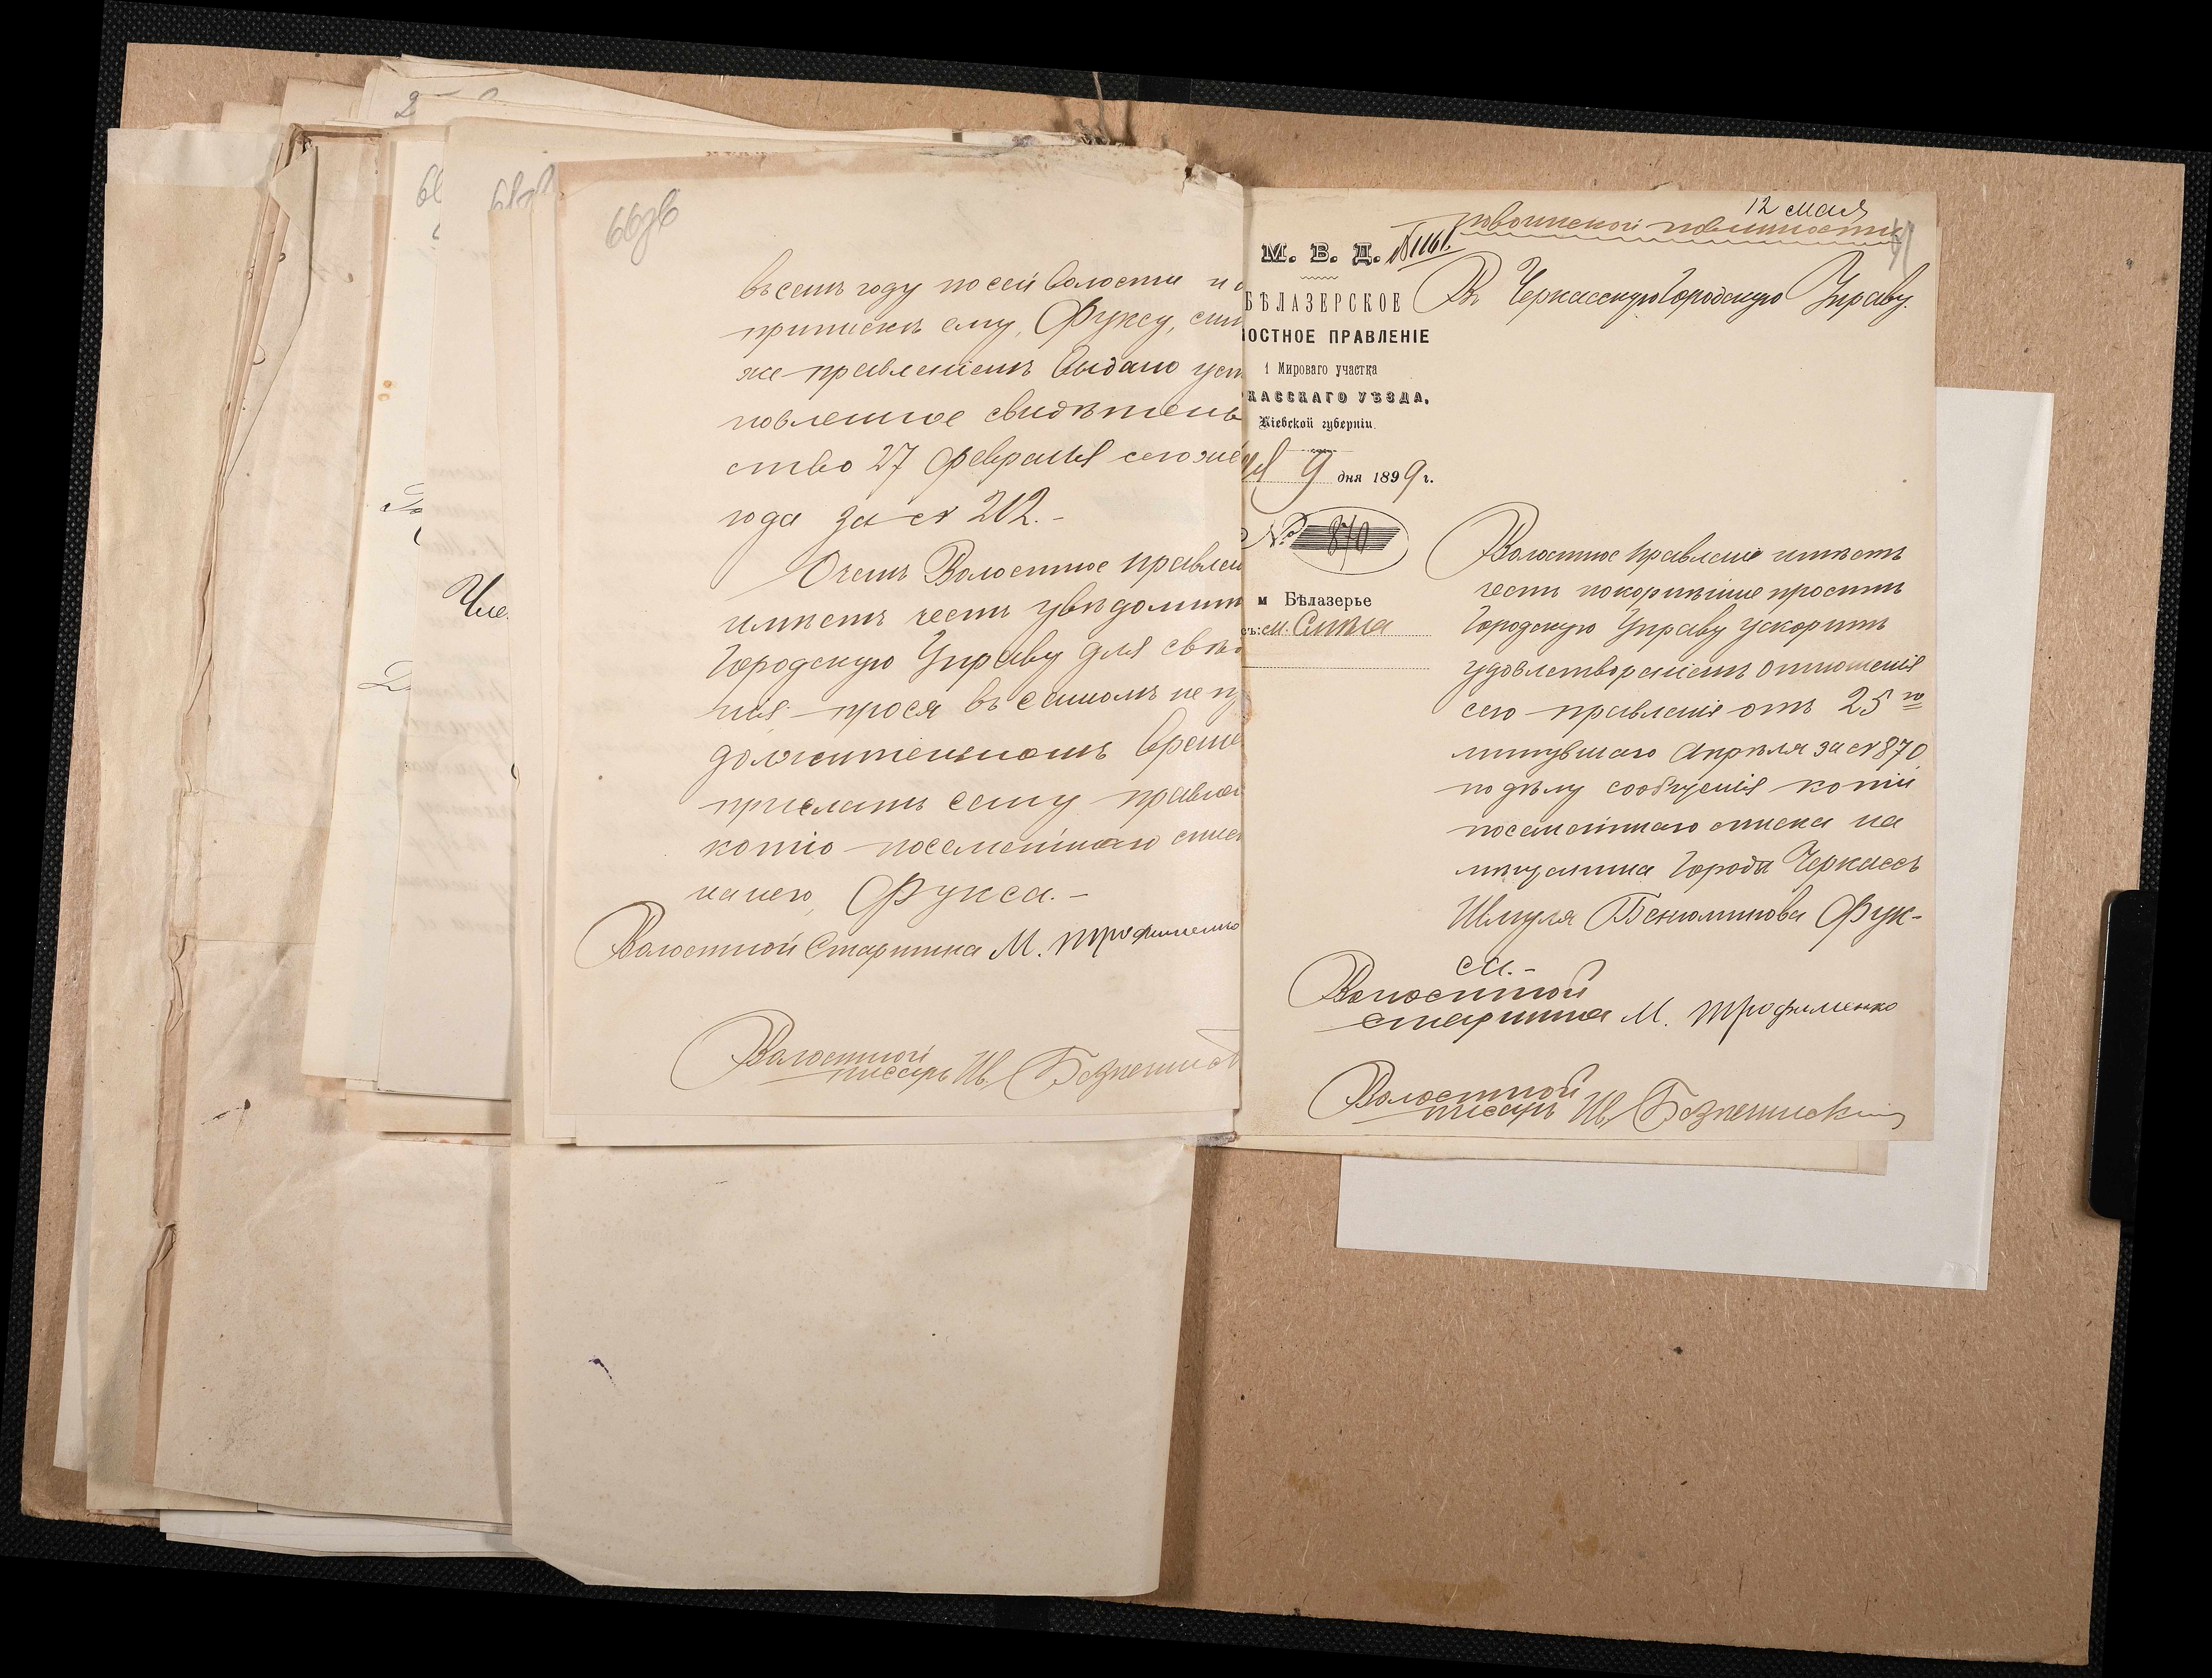 66об
въ семъ году по сей волости и о
припискѣ ему, Фуксу, сим
же правленіемъ выдано уст
новленное свидѣтель
ство 27 февраля сего же
года за № 212.-
О чемъ Волостное правлен
имѣетъ честь увѣдомить
Городскую Управу для свѣд
нія, прося въ самомъ непр
должительномъ време
прислать сему правлен
копію посемейнаго спис
на него, Фукса.-
Волостной Старшина М. Трофименко
Волостной
писарь Ив. Безпечинск
12 мая
по воинской повинности
М. В. Д. №1161.
БѢЛАЗЕРСКОЕ
ЛОСТНОЕ ПРАВЛЕНІЕ
1 Мироваго участка
КАССКАГО УѢЗДА,
Кіевской губерніи.
9 дня 1899 г.
№ 870
м Бѣлазерье
съ: м. Смѣла
Въ Черкасскую Городскую Управу.
Волостное правленіе имѣетъ
честь покорнѣйше просить
Городскую Управу ускорить
удовлетвореніемъ отношенія
сего правленія отъ 25го
минувшаго Апрѣля за № 870
по дѣлу сообщенія копіи
посемейнаго списка на
мѣщанина города Черкассъ
Шмуля Бенюминова Фук-
са.-
Волостной
старшина М. Трофименко
Волостной
писарь Ив. Безпечинскій